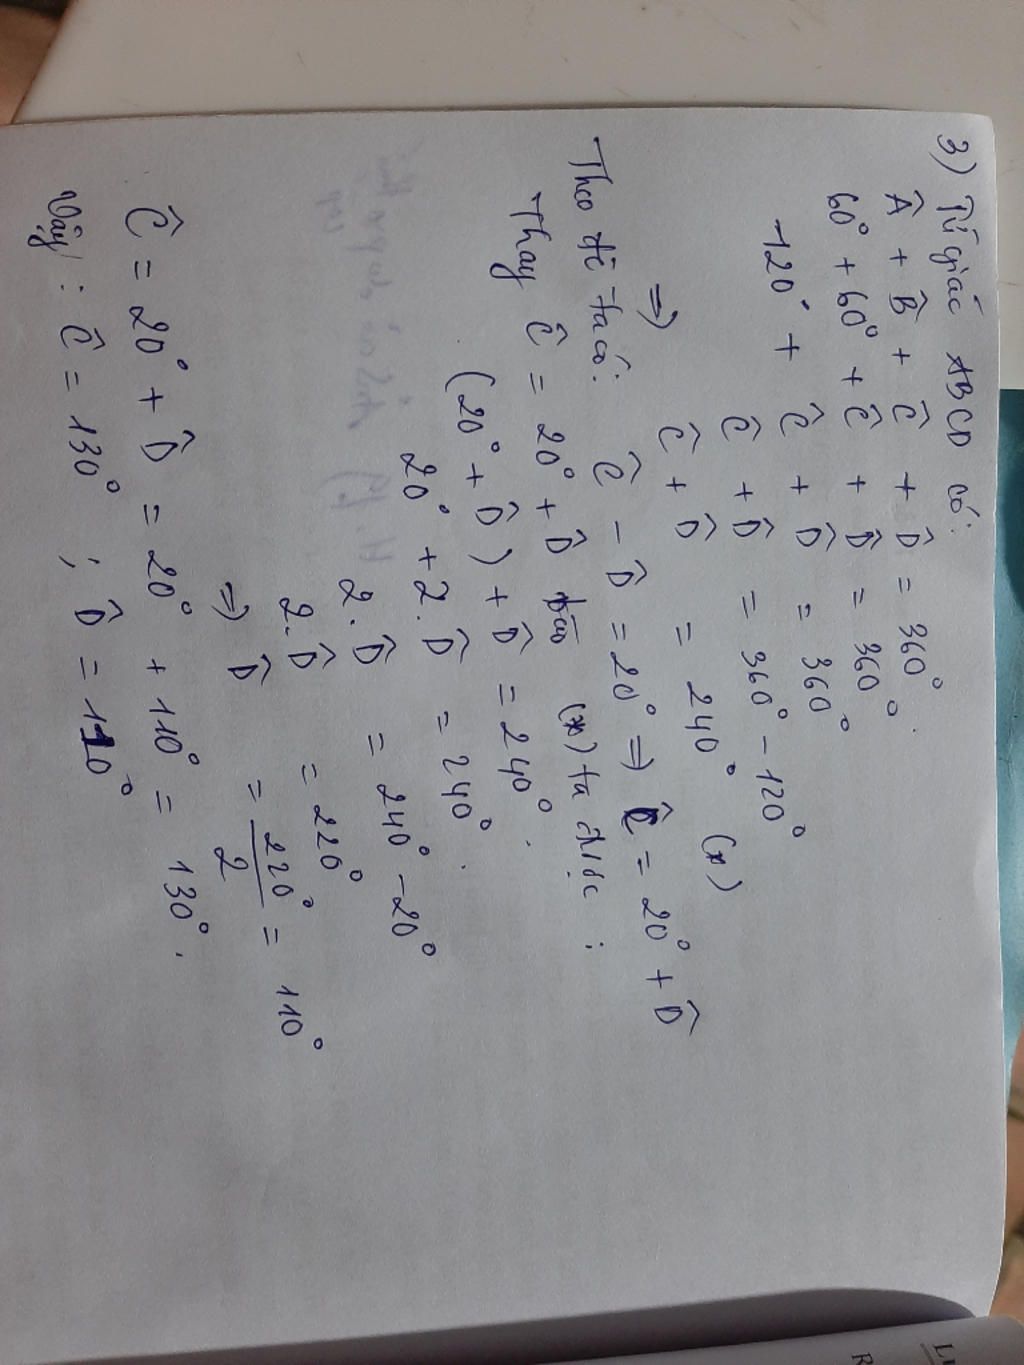 3) Tứ giác ABCD có:
Â + B̂ + Ĉ + D̂ = 360°
60° + 60° + Ĉ + D̂ = 360°
120° + Ĉ + D̂ = 360°
Ĉ + D̂ = 360° - 120°
=> Ĉ + D̂ = 240° (*)
Theo đề ta có: Ĉ - D̂ = 20° => Ĉ = 20° + D̂
Thay Ĉ = 20° + D̂ vào (*) ta được :
(20° + D̂) + D̂ = 240°.
20° + 2.D̂ = 240°.
2.D̂ = 240° - 20°
2.D̂ = 220°
=> D̂ = 220°/2 = 110°
Ĉ = 20° + D̂ = 20° + 110° = 130°.
Vậy : Ĉ = 130° ; D̂ = 110°